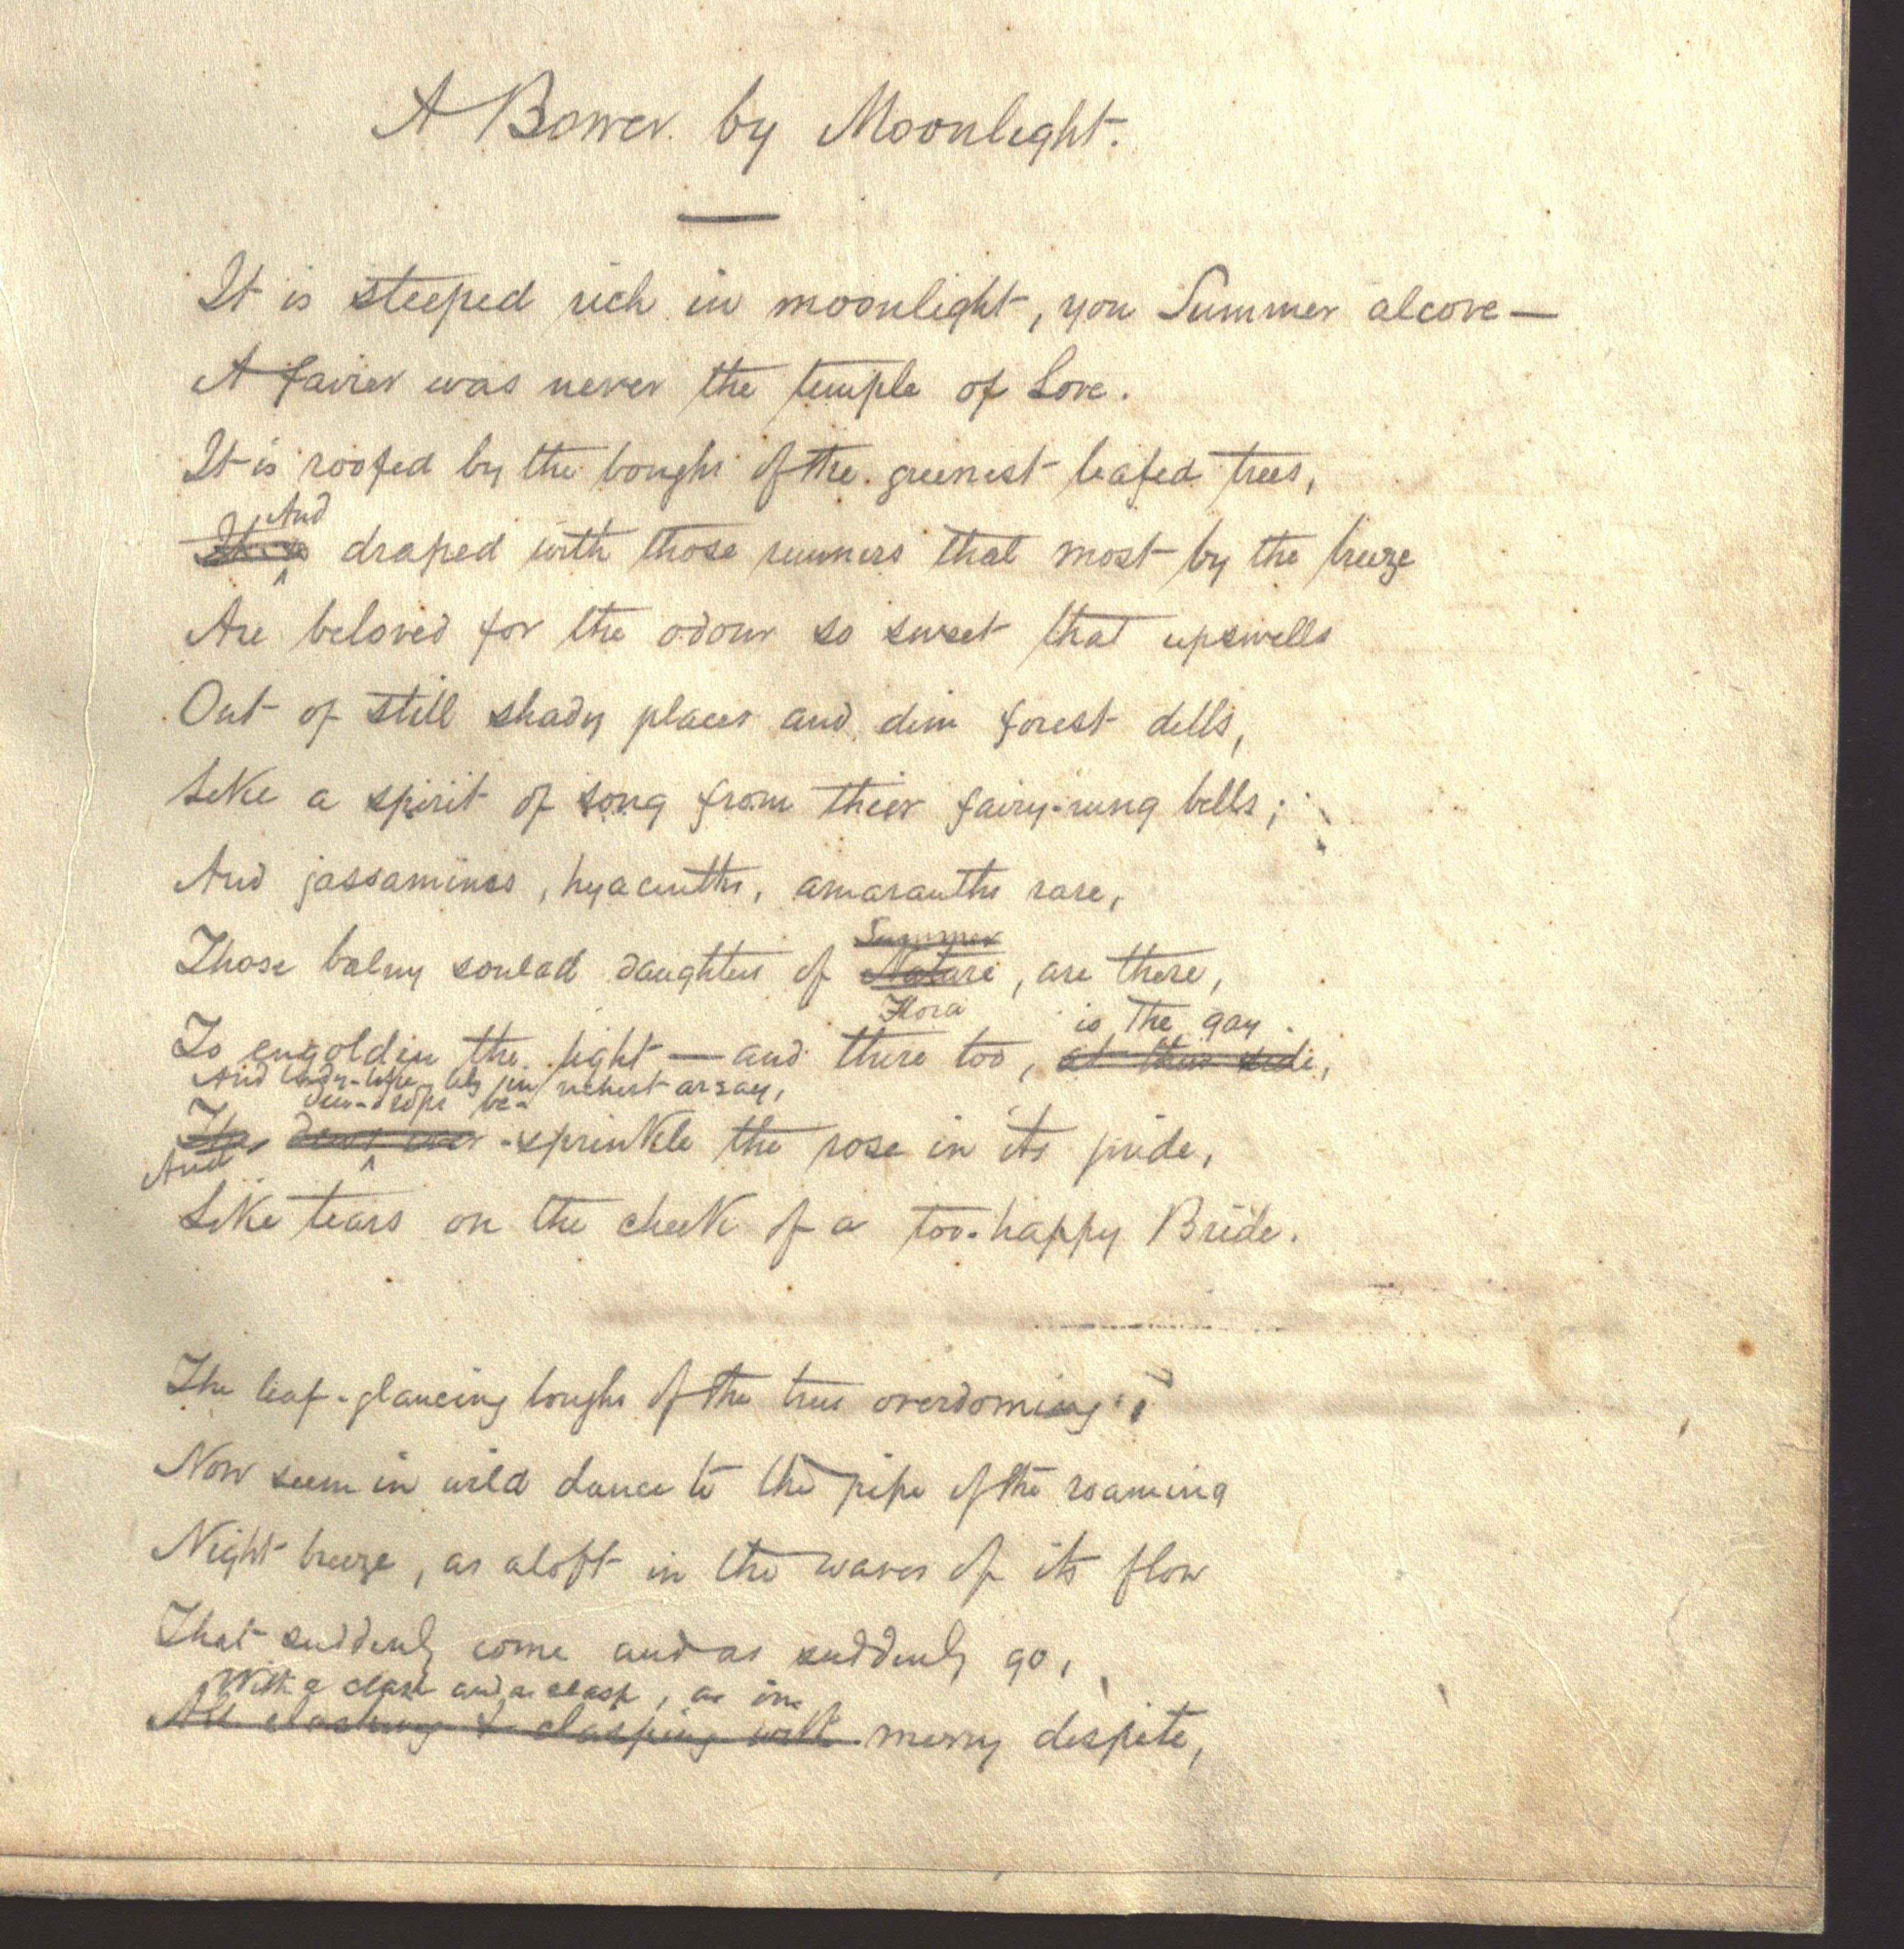 A Bower by Moonlight.
It is steeped rich in moonlight, yon Summer alcove —
A fairer was never the temple of Love.
It is roofed by the boughs of the greenest leafed trees,
And
It is draped with those runners that most by the breeze
Are beloved for the odour so sweet that upswells
Out of still shady places and dim forest dells,
Like a spirit of song from their fairy-rung bells;
And jassamines, hyacinths, amaranths rare,
Summer
Those balmy souled daughters of Nature, are there,
Flora
is the gay
To engolden the light — and there too, at their side,
And lady-like lily in richest array,
dew-drops be-
The dews -sprinkle the rose in its pride,
And
Like tears on the cheek of a too-happy Bride.
The leaf-glancing boughs of the trees overdoming
Now seem in wild dance to the pipe of the roaming
Night breeze, as aloft in the waves of its flow
That suddenly come and as suddenly go,
With a clash and a clasp, as in
All clashing & clasping with merry despite,